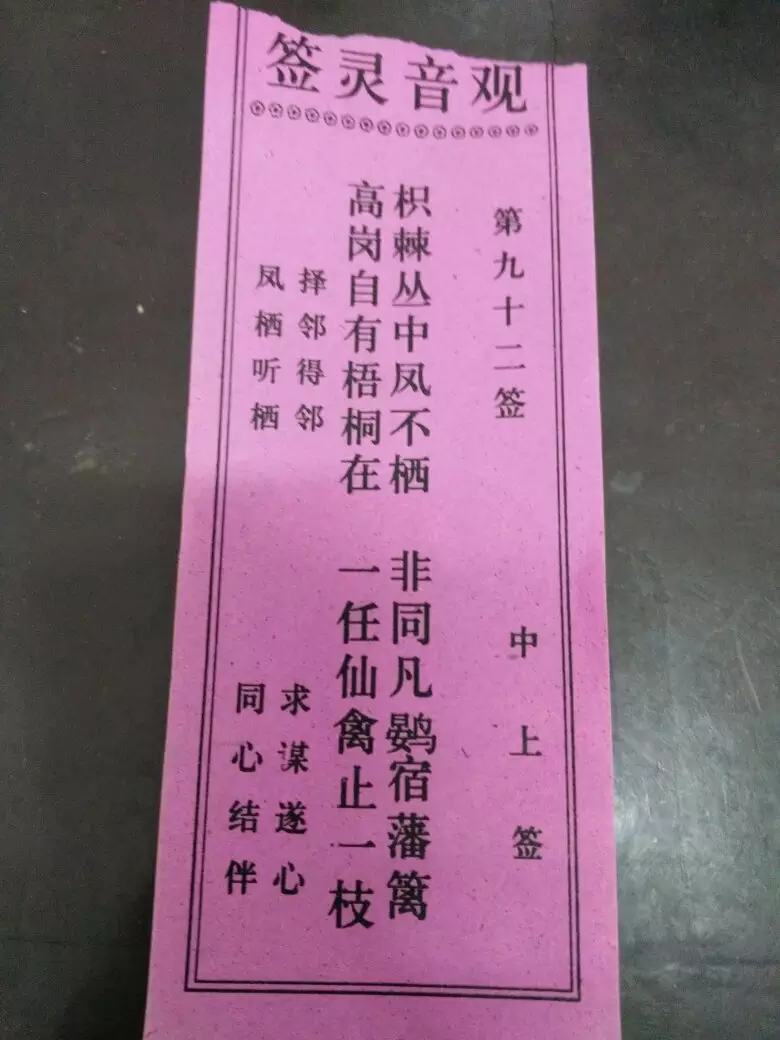 观音灵签
第九十二签 中上签
枳棘丛中凤不栖 非同凡鷃宿藩篱
高岗自有梧桐在 一任仙禽止一枝
择邻得邻 求谋遂心
凤栖听栖 同心结伴